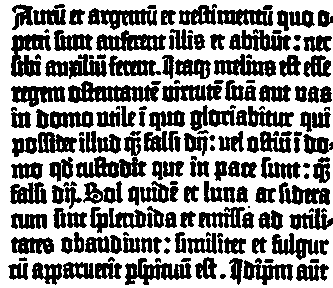 Aurū et argentū et vestimentū quo o-
peri sunt auferent illis et abibūt: nec
sibi auxiliū ferent. Itaq; melius est esse
regem ostentantē virtutē suā aut vas
in domo utile ī quo gloriabitur qui
possidet illud q̄ falsi dij: vel ostiū ī do-
mo qd̄ custodit que in pace sunt: q̄
falsi dij. Sol quidē et luna ac sidera
cum sint splendida et emissa ad utili-
tates obaudiunt: similiter et fulgur
cū apparuerit pspicuū est. Idipm̄ aūt